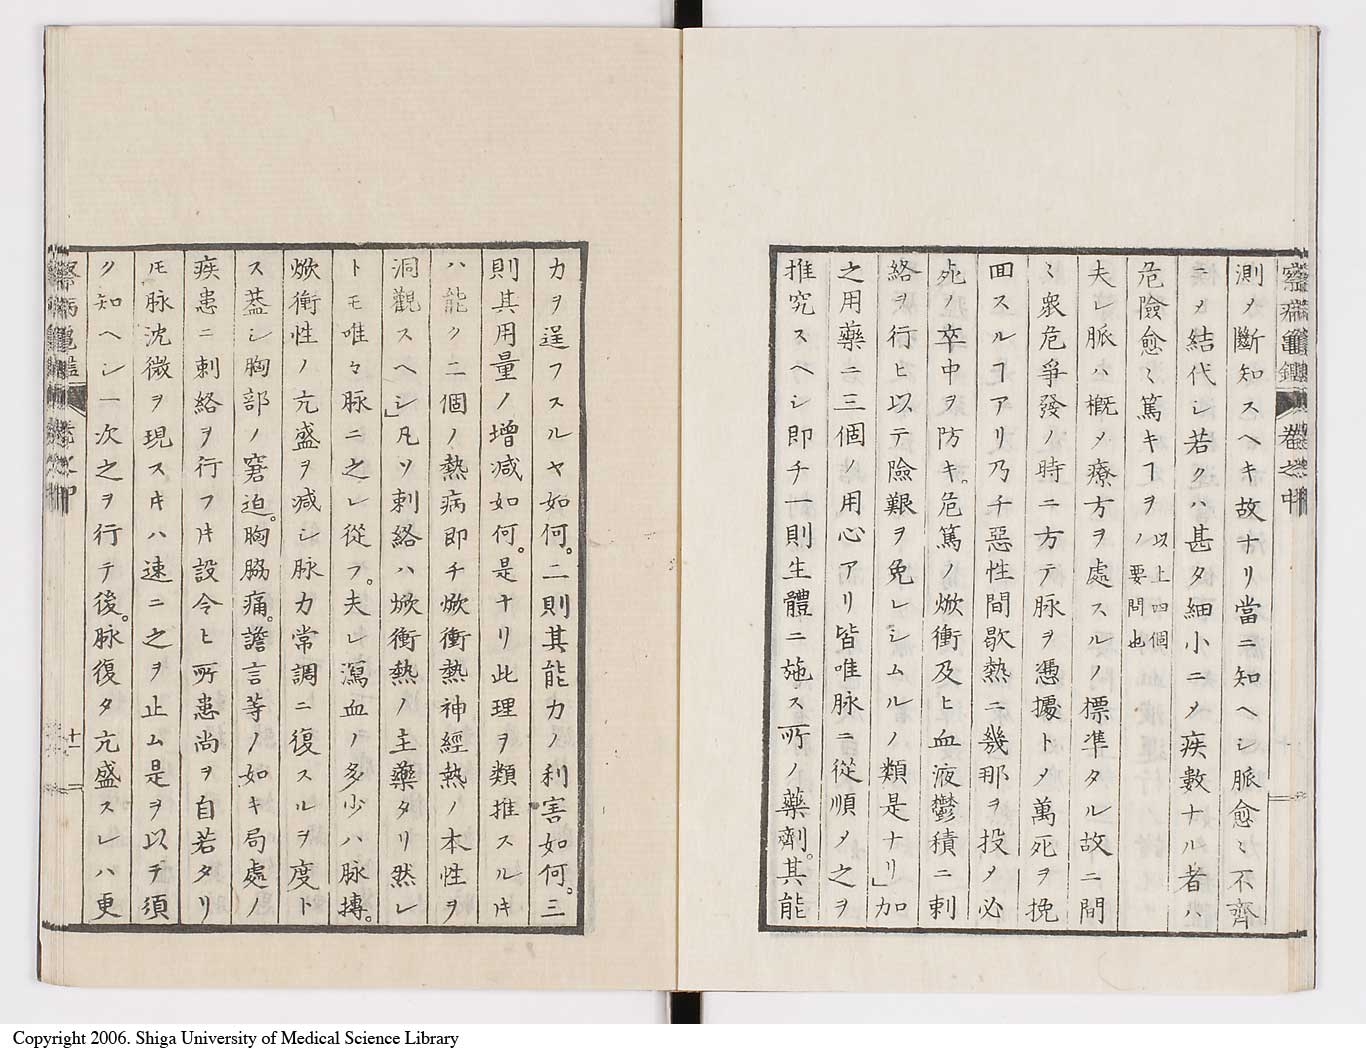 察病亀鑑 卷之中
測メ斷知スヘキ故ナリ當ニ知ヘシ脈愈ミ不齊
ニメ結代シ若クハ甚タ細小ニメ疾數ナル者ハ
危險愈ミ篤キヿヲ以上四個ノ要問也
夫レ脈ハ概メ療方ヲ處スルノ標準タル故ニ間
ミ衆危爭發ノ時ニ方テ脉ヲ憑據トメ萬死ヲ挽
回スルヿアリ乃チ惡性間歇熱ニ幾那ヲ投メ必
死ノ卒中ヲ防キ。危篤ノ焮衝及ヒ血液鬱積ニ刺
絡ヲ行ヒ以テ險艱ヲ免レシムルノ類是ナリ」加
之用藥ニ三個ノ用心アリ皆唯脉ニ從順メ之ヲ
推究スヘシ即チ一則生體ニ施ス所ノ藥劑。其能
力ヲ逞フスルヤ如何。二則其能力ノ利害如何。三
則其用量ノ増减如何。是ナリ此理ヲ類推スルキ
ハ能ク二個ノ熱病即チ焮衝熱神經熱ノ本性ヲ
洞觀スヘシ」凡ソ刺絡ハ焮衝熱ノ主藥タリ然レ
トモ唯々脉ニ之レ從フ。夫レ瀉血ノ多少ハ脉搏。
焮衝性ノ亢盛ヲ减シ脉力常調ニ復スルヲ度ト
ス葢シ胸部ノ窘迫。胸脇痛。譫言等ノ如キ局處ノ
疾患ニ刺絡ヲ行フ𪜈設令ヒ所患尚ヲ自若タリ
𪜈脉沈微ヲ現スキハ速ニ之ヲ止ム是ヲ以テ須
ク知ヘシ一次之ヲ行テ後。脉復タ亢盛スレハ更
十一
Copyright 2006. Shiga University of Medical Science Library